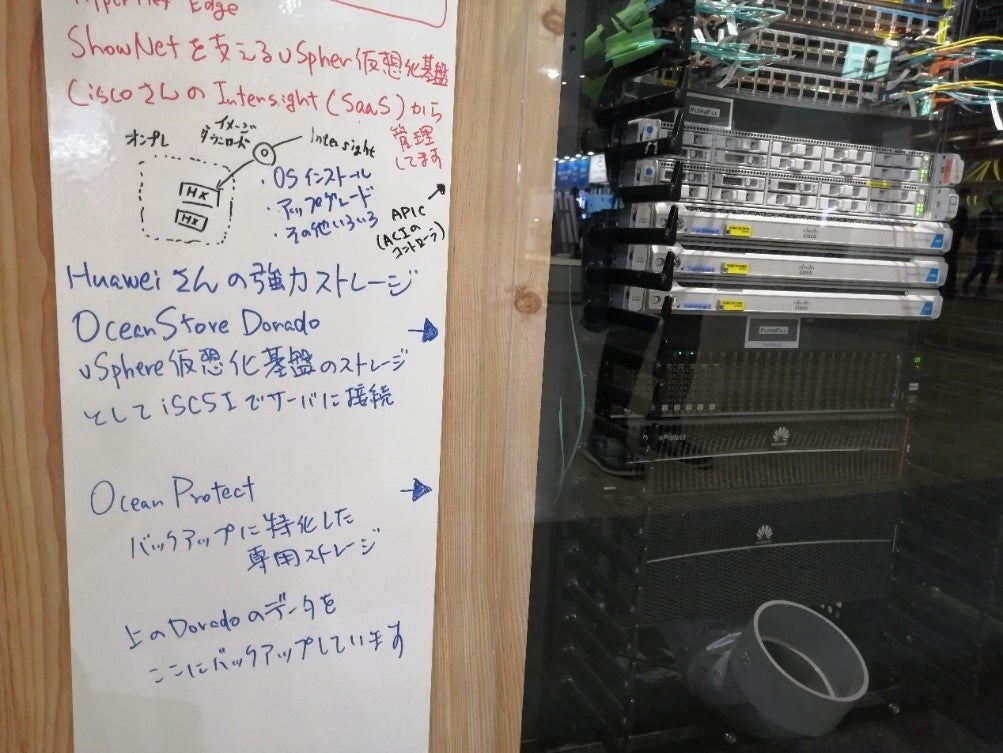 HyperFlex Edge
ShowNetを支えるvSpher仮想化基盤
CiscoさんのIntersight(SaaS)から
管理
してます
オンプレ
イメージ
ダウンロード
Intersight
HX
HX
・OSインストール
・アップグレード
・その他いろいろ
APIC
(ACIの
コントローラ)
Huaweiさんの強力ストレージ
OceanStore Dorado
vSphere仮想化基盤のストレージ
としてiSCSIでサーバに接続
Ocean Protect
バックアップに特化した
専用ストレージ
上のDoradoのデータを
ここにバックアップしています
PCIENAFILL
CISCO
CISCO
CISCO
Protect
HUAWEI